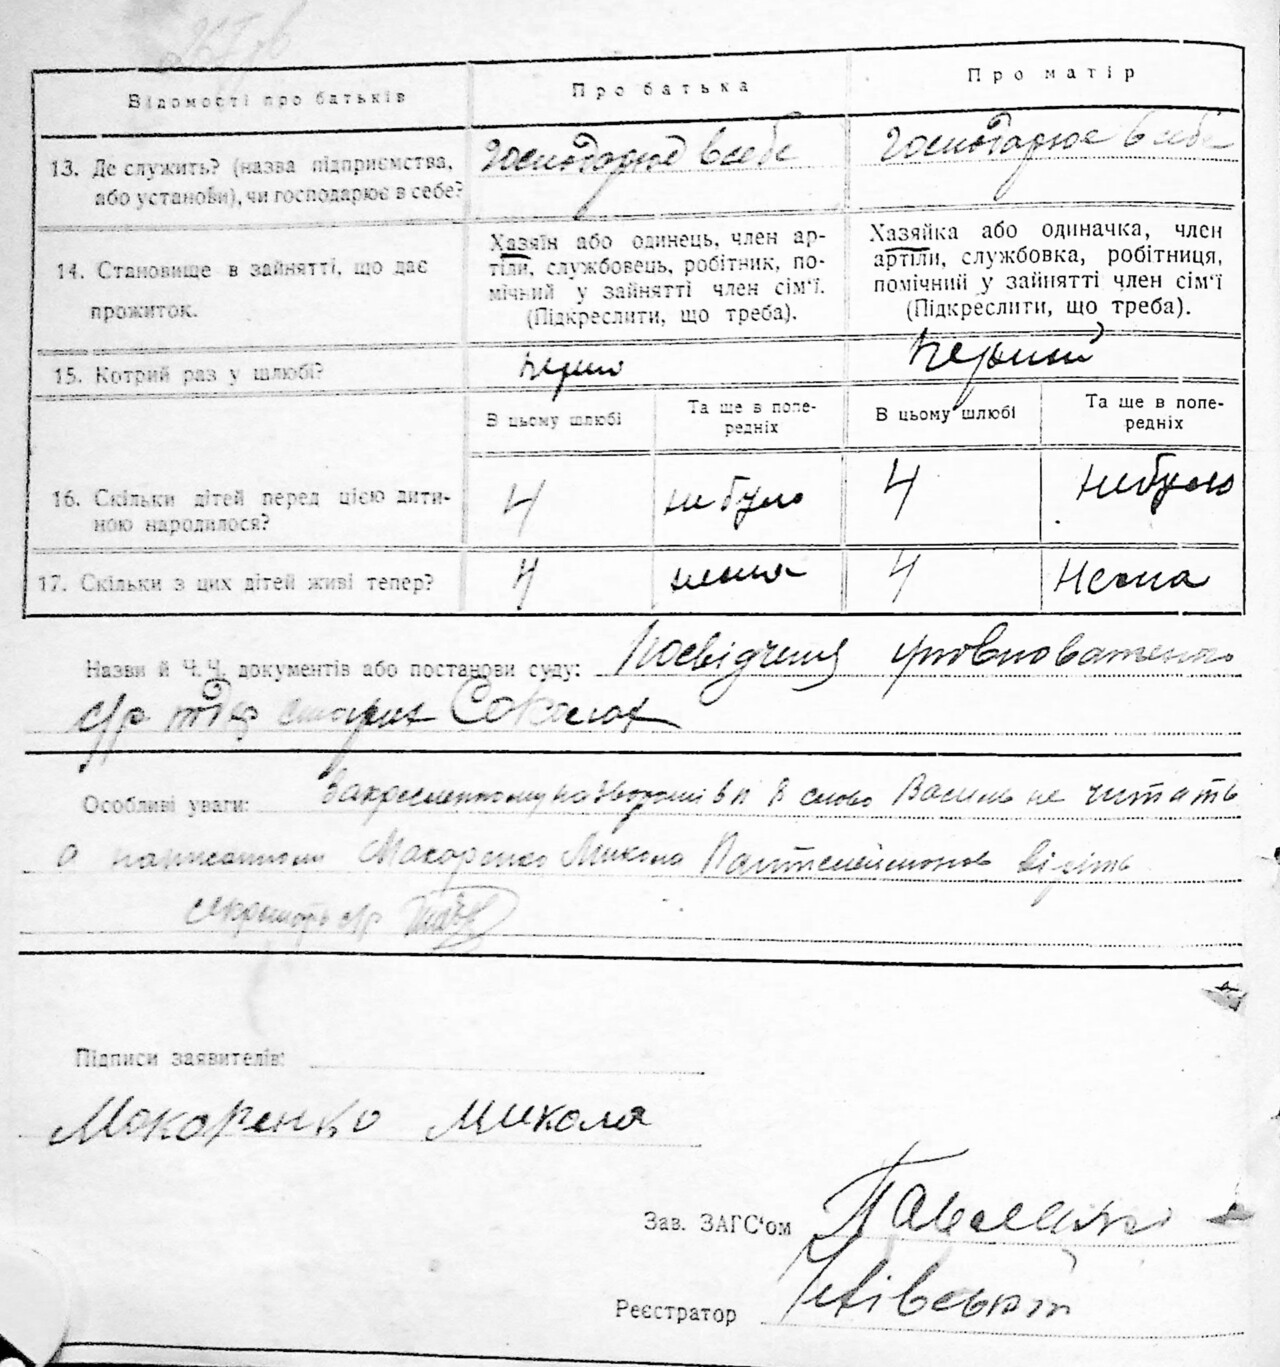 Відомості про батьків
Про батька
Про матір
13. Де служить? (назва підприємства,
або установи), чи господарює в себе?
господарює в себе
господарює в себе
14. Становище в зайнятті, що дає
прожиток.
Хазяїн або одинець, член ар-
тіли, службовець, робітник, по-
мічний у зайнятті член сім'ї.
(Підкреслити, що треба).
Хазяйка або одиначка, член
артіли, службовка, робітниця,
помічний у зайнятті член сім'ї
(Підкреслити, що треба).
15. Котрий раз у шлюбі?
перший
В цьому шлюбі
Та ще в попе-
редніх
В цьому шлюбі
Та ще в попе-
редніх
16. Скільки дітей перед цією дити-
ною народилося?
4
не було
4
не було
17. Скільки з цих дітей живі тепер?
4
нема
4
нема
Назви й Ч.Ч. документів або постанови суду: Посвідчення уповноваженого
с/р
Особливі уваги: слово Василь не читать
а написанному Макаренко Микола Пантелеймонов вірить
секретарь с/р
Підписи заявителів:
Макаренко Микола
Зав. ЗАГС'ом
Реєстратор